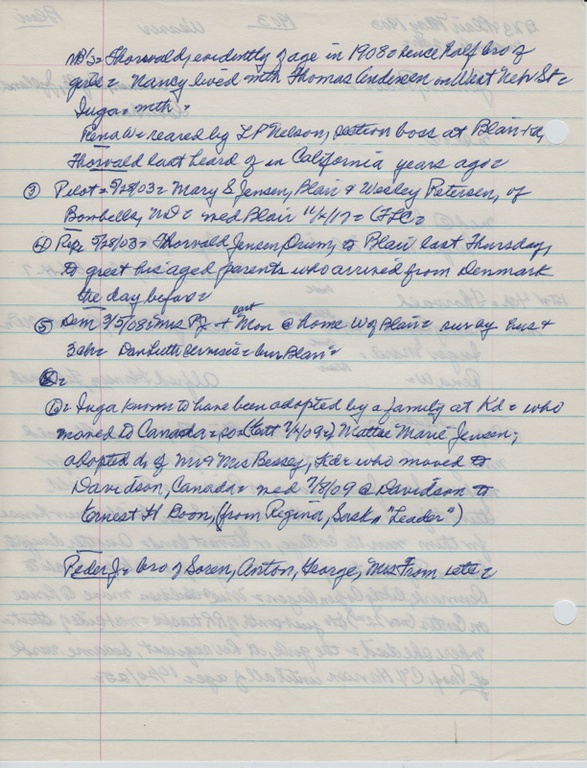 NB's = Thorvald, evidently of age in 1908 & hence half bro of
girls = Nancy lived with Thomas Andersen on West Nebr St =
Inga = mth =
Rena W = reared by L P Nelson, section boss at Blair + Kd,
Thorvald last heard of in California years ago =
③ Pilot = 5/28/03 = Mary E Jensen, Blair & Wesley Petersen, of
Bombells, ND = med Blair =
④ Rep, 5/28/03 = Thorvald Jensen, Orum, to Blair last Thursday,
to greet his aged parents who arrived from Denmark
the day before =
⑤ Dem 3/5/08 = Mrs PJ + last Mon @ home W of Blair = surv by hus +
3 ch = Dan Luth services = bur Blair =
⑥ =
⑥ = Inga known to have been adopted by a family at Kd = who
moved to Canada = so = Mattie Marie Jensen,
adopted d, of Mr & Mrs Bessey, Kd = who moved to
Davidson, Canada = med 7/8/09 @ Davidson to
Ernest H Boon, (from Regina, Sask, "Leader")
Peder J = bro of Soren, Anton, George, Mrs From =